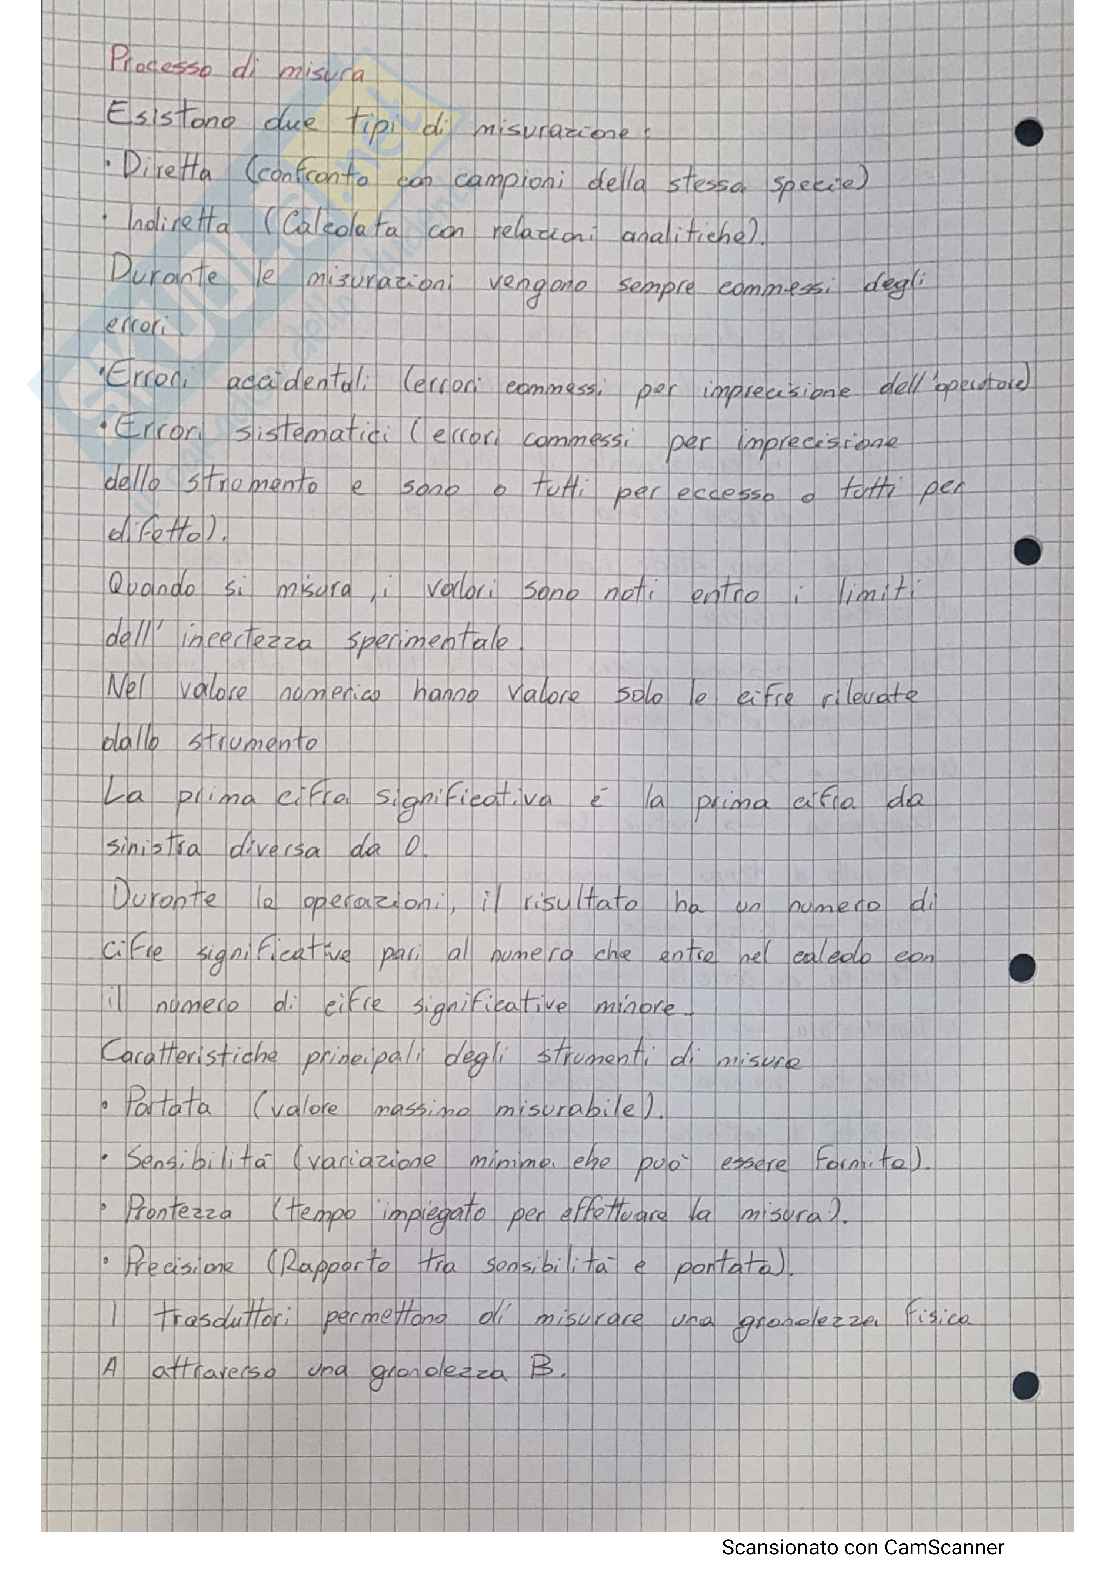 Processo di misura
Esistono due tipi di misurazione:
• Diretta (confronto con campioni della stessa specie)
• Indiretta (Calcolata con relazioni analitiche).
Durante le misurazioni vengono sempre commessi degli
errori.
• Errori accidentali (errori commessi per imprecisione dell'operatore)
• Errori sistematici (errori commessi per imprecisione
dello strumento e sono o tutti per eccesso o tutti per
difetto).
Quando si misura, i valori sono noti entro i limiti
dell'incertezza sperimentale.
Nel valore numerico hanno valore solo le cifre rilevate
dallo strumento
La prima cifra significativa è la prima cifra da
sinistra diversa da 0.
Durante le operazioni, il risultato ha un numero di
cifre significative pari al numero che entre nel calcolo con
il numero di cifre significative minore.
Caratteristiche principali degli strumenti di misura
• Portata (valore massimo misurabile).
• Sensibilità (variazione minima che può essere fornita).
• Prontezza (tempo impiegato per effettuare la misura).
• Precisione (Rapporto tra sensibilità e portata).
I trasduttori permettono di misurare una grandezza fisica
A attraverso una grandezza B.
Scansionato con CamScanner